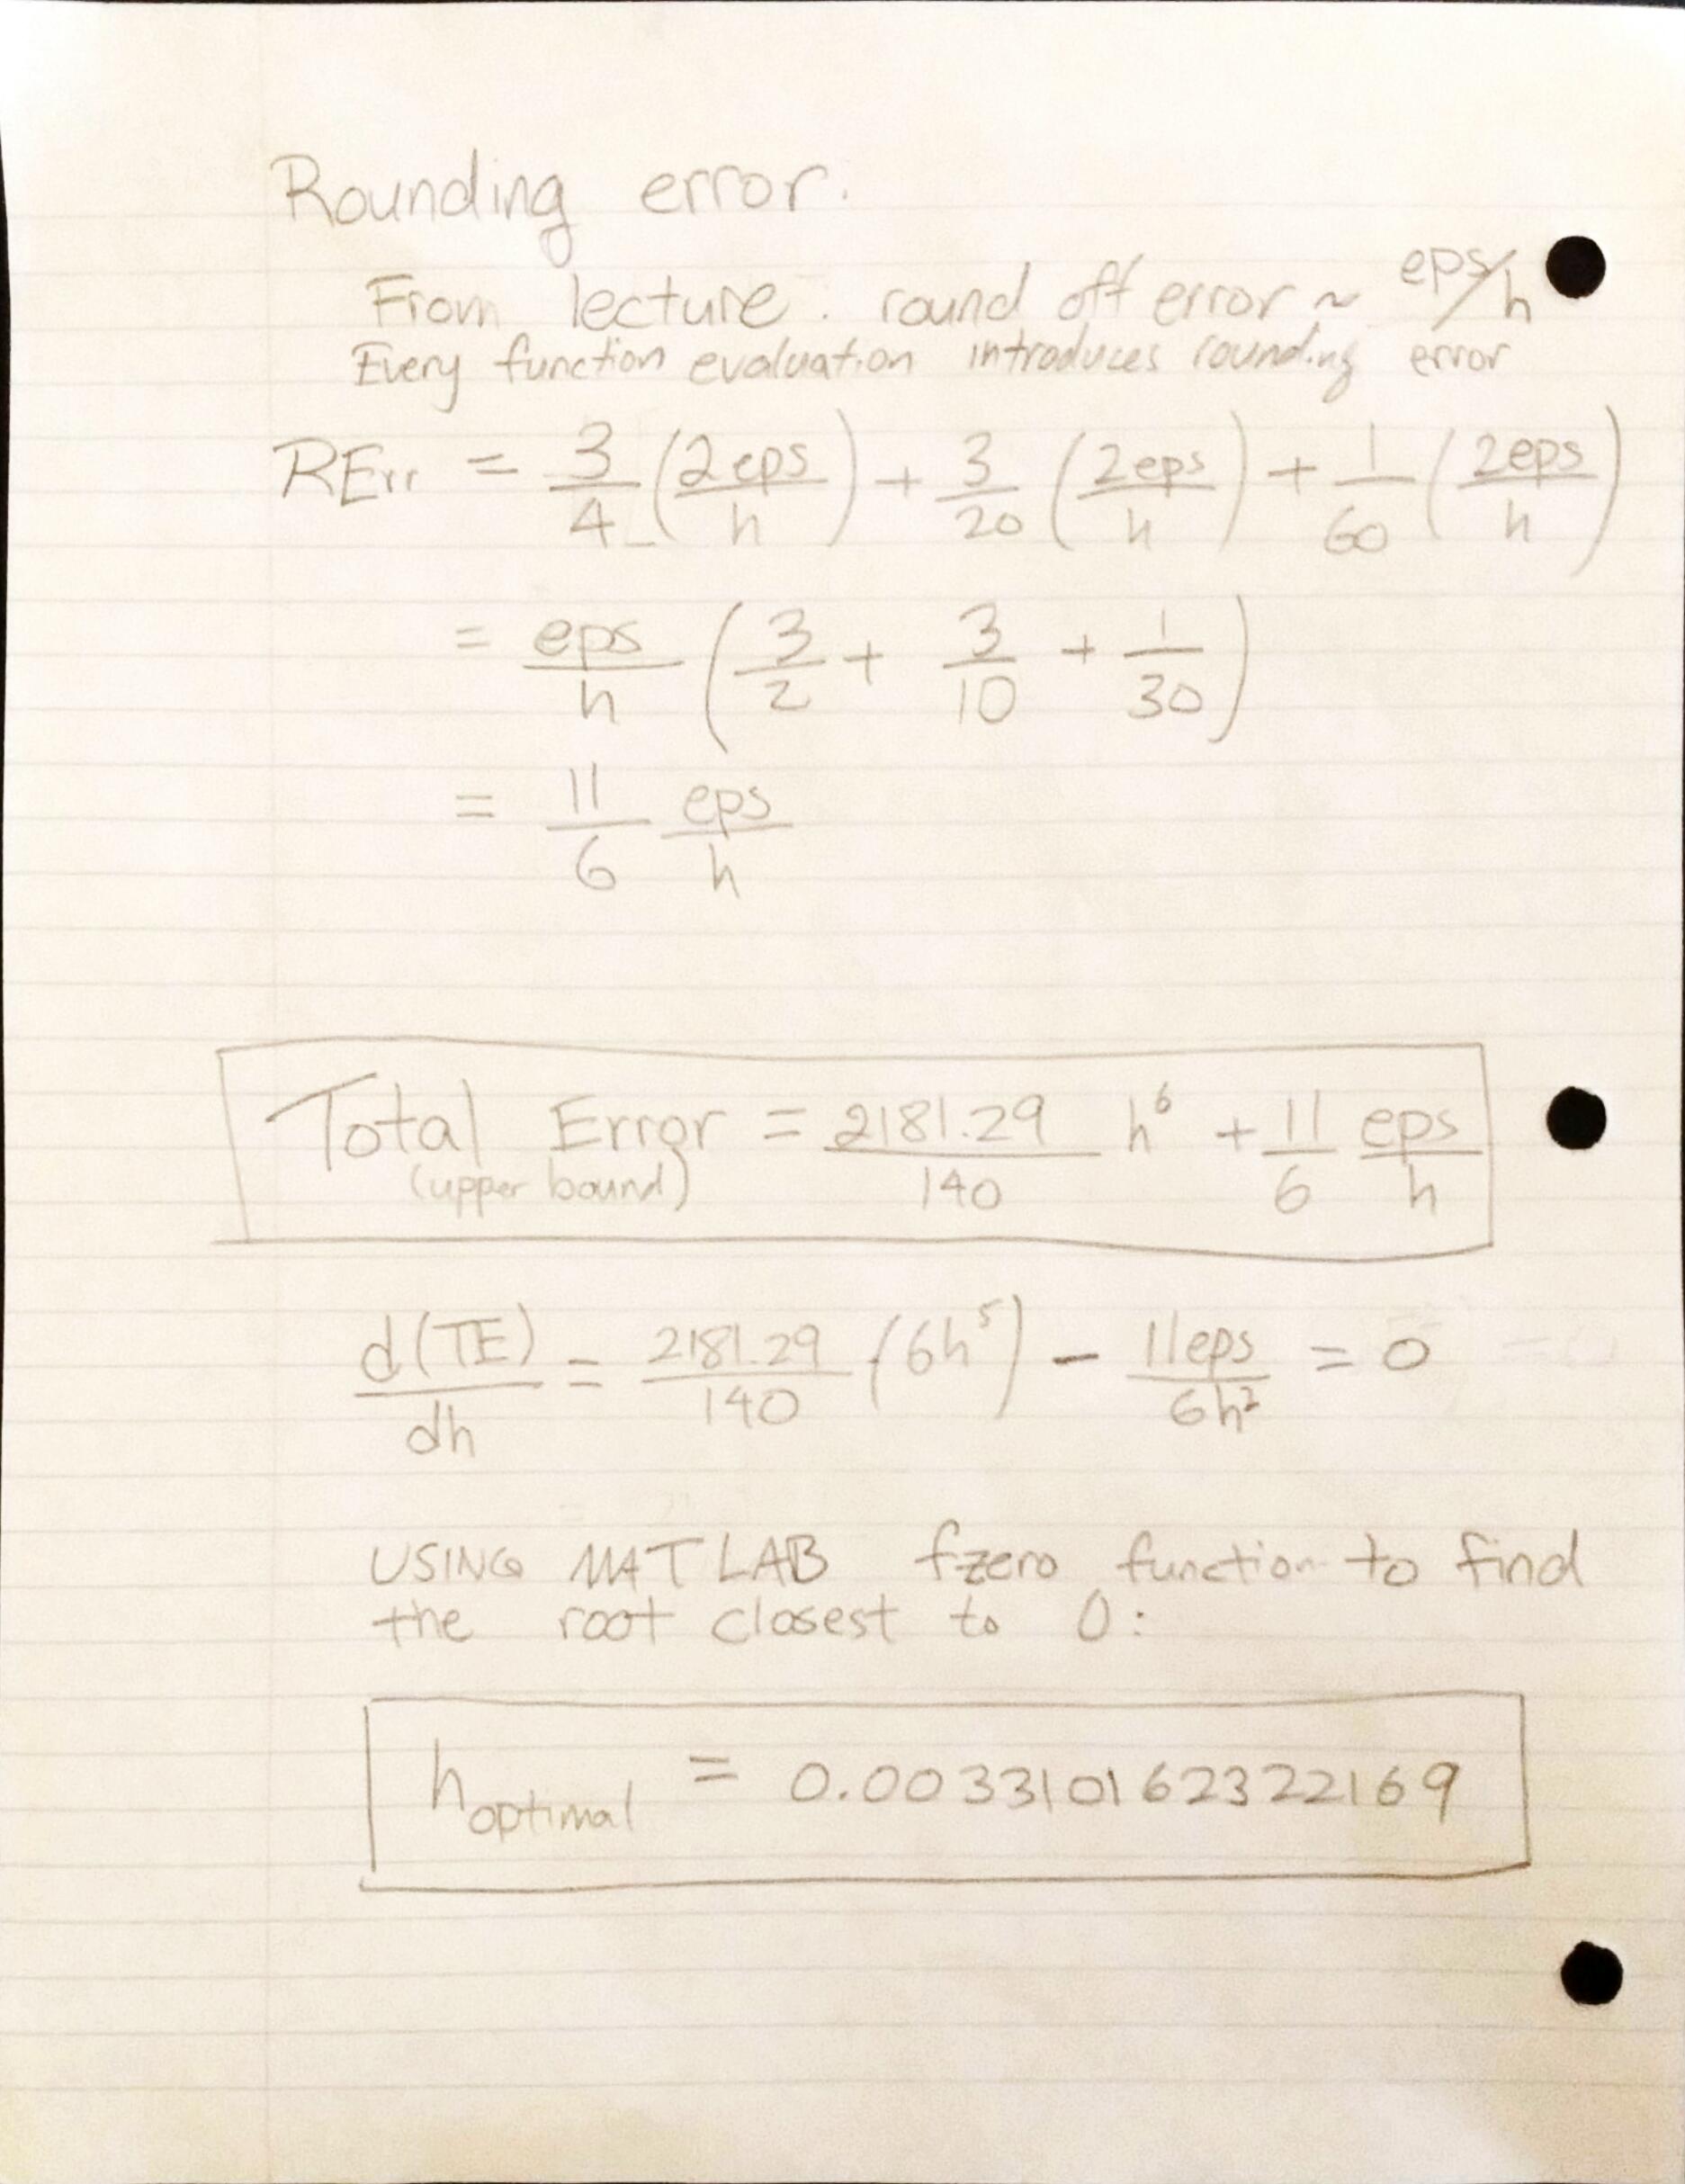 Rounding error.
From lecture. round off error ~ eps/h
Every function evaluation introduces rounding error
RErr = 3/4 (2eps/h) + 3/20 (2eps/h) + 1/60 (2eps/h)
= eps/h (3/2 + 3/10 + 1/30)
= 11/6 eps/h
Total Error = 2181.29/140 h^6 + 11/6 eps/h
(upper bound)
d(TE)/dh = 2181.29/140 (6h^5) - 11eps/6h^2 = 0
USING MATLAB fzero function to find
the root closest to 0:
h optimal = 0.003310162322169